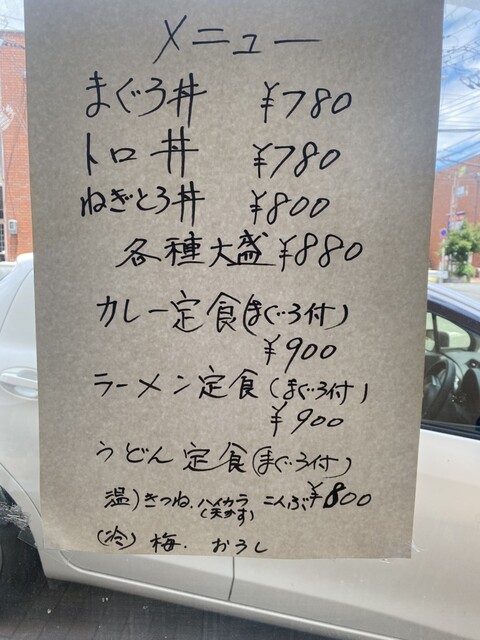 メニュー
まぐろ丼 ¥780
トロ丼 ¥780
ねぎとろ丼 ¥800
各種大盛 ¥880
カレー定食(まぐろ付)
¥900
ラーメン定食(まぐろ付)
¥900
うどん定食(まぐろ付)
温)きつね、ハイカラ こんぶ ¥800
(天かす)
(冷) 梅. おろし